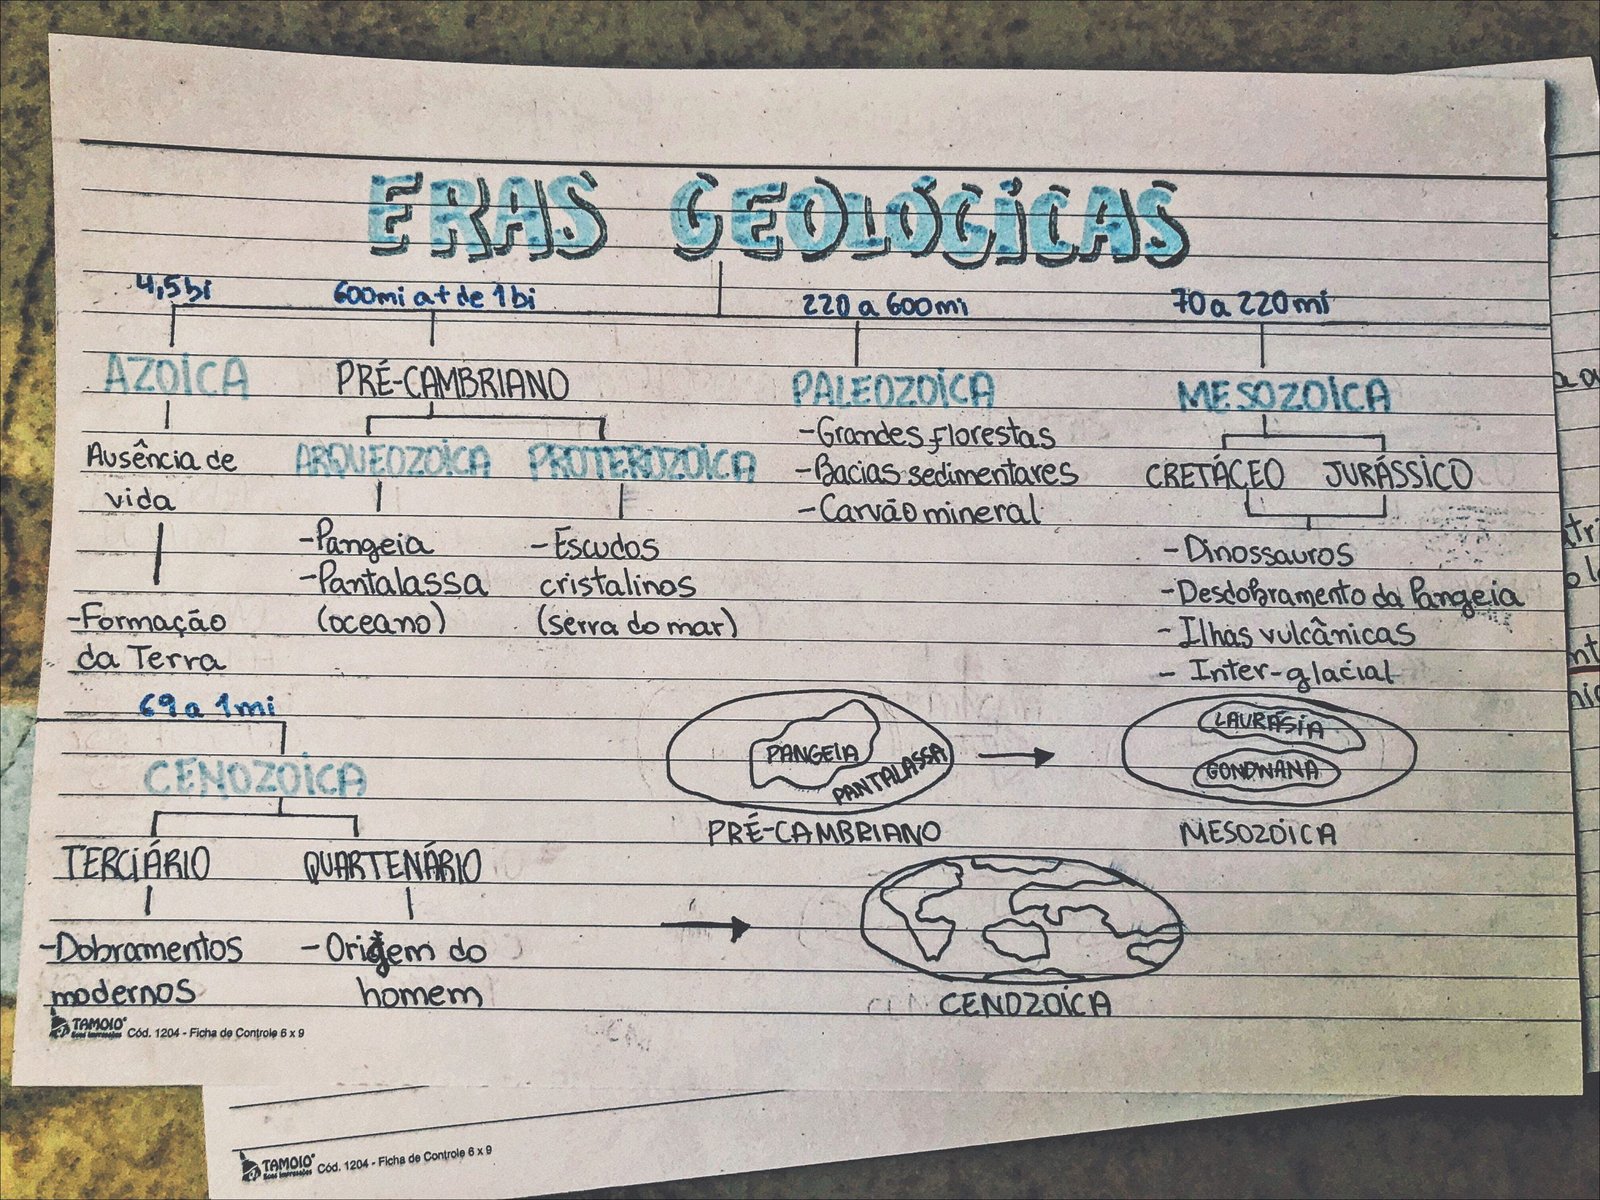 ERAS GEOLÓGICAS
4,5 bi
600mi a + de 1 bi
220 a 600mi
70 a 220 mi
AZOICA
PRÉ-CAMBRIANO
PALEOZOICA
MESOZOICA
Ausência de
vida
-Formação
da Terra
ARQUEOZOICA
-Pangeia
-Pantalassa
(oceano)
PROTEROZOICA
-Escudos
cristalinos
(serra do mar)
-Grandes florestas
-Bacias sedimentares
-Carvão mineral
CRETÁCEO
JURÁSSICO
-Dinossauros
-Desdobramento da Pangeia
-Ilhas vulcânicas
- Inter-glacial
69 a 1mi
CENOZOICA
TERCIÁRIO
QUARTENÁRIO
-Dobramentos
modernos
-Origem do
homem
PANGEIA
PANTALASSA
PRÉ-CAMBRIANO
LAURÁSIA
GONDWANA
MESOZOICA
CENOZOICA
TAMOIO
Boas Impressões
Cód. 1204 - Ficha de Controle 6 x 9
TAMOIO
Boas Impressões
Cód. 1204 - Ficha de Controle 6 x 9